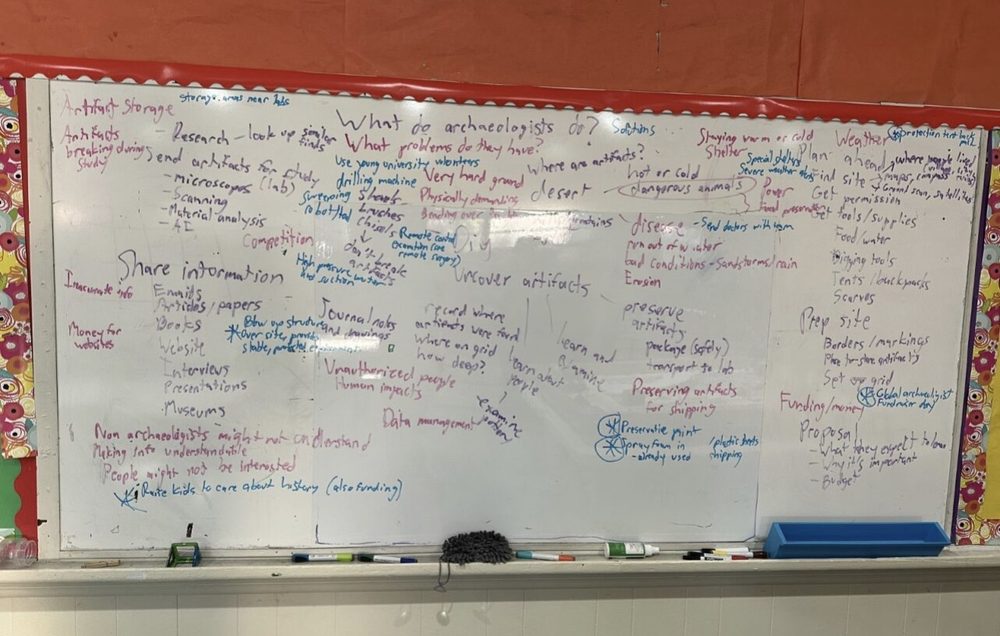 Artifact Storage
storage areas near labs
Artifacts
breaking during
study
- Research - look up similar
finds
Send artifacts for study
- microscopes (lab)
- Scanning
- Material analysis
- AI
Competition
Share information
Inaccurate info
Emails
Articles/papers
Books
Money for
websites
Website
Interviews
Presentations
Museums
Blow up structure
over site, protects
stable, protected environment
Non archaeologists might not understand
Making info understandable
People might not be interested
Raise kids to care about history (also funding)
What do archaeologists do?
What problems do they have?
Solutions
Use young university volunteers
Very hard ground
drilling machine
Physically demanding
Sweeping
robot
Shovels
brushes
chisels
don't break
artifacts
Remote control
excavation (like
remote surgery)
High pressure water
and suction
Dig
Where are artifacts?
desert
mountains
hot or cold
dangerous animals
disease
- Send doctors with team
run out of water
bad conditions - sandstorms/rain
Erosion
Uncover artifacts
Journal notes
and drawings
record where
artifacts were found
where on grid
how deep?
learn about
people
learn and
examine
Unauthorized people
Human impacts
Data management
preserve
artifacts
package (safely)
transport to lab
Preserving artifacts
for shipping
Preservative paint
Spray foam in
- already used
/plastic
shipping
Staying warm or cold
Shelter
Special shelters
Severe weather alerts
Power
Food preservation
Weather
Plan
ahead
where people lived
Find site
maps
Ground scan, satellites
Get
permission
Get tools/supplies
Food/water
Digging tools
Tents/backpacks
Scarves
Prep site
Borders/markings
Place to store artifacts
Set up grid
Global archaeologist
fundraiser day
Funding/money
Proposal
- What they expect to learn
- Why it's important
- Budget